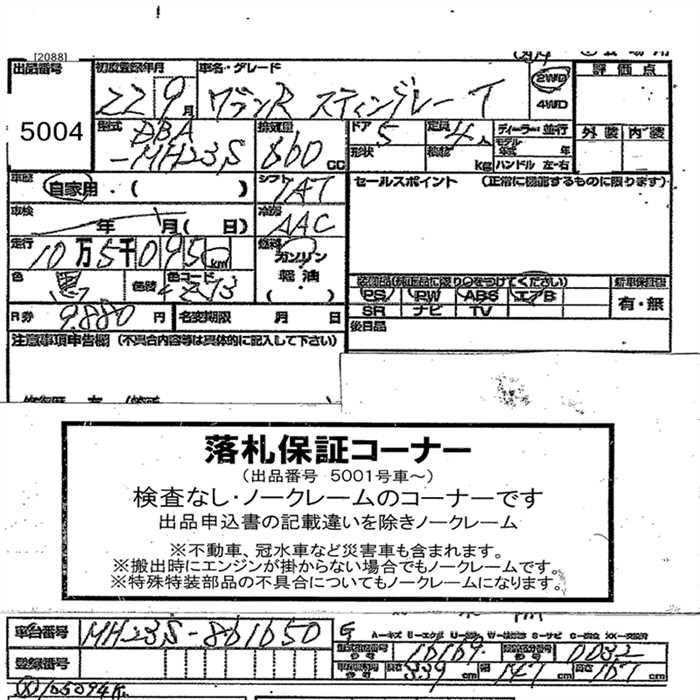 [2088]
出品番号 初度登録年月 車名・グレード 2WD 評価点
5004 22 9月 ワゴンR スティングレー T 4WD
型式 DBA-MH23S 排気量 660 CC ドア 5 定員 4人 ディーラー・並行 外装 内装
形状 積載 kg モデル年式 年 ハンドル 左・右
車歴 自家用・( ) シフト IAT セールスポイント (正常に機能するものに限ります)
車検 年 月( 日) 冷房 AAC
走行 10万5千095km 燃料 ガソリン・軽油・( )
色 黒 色替 色コード ZJ3 装備品(純正品に限り○をつけてください) 新車保証書
PS PW ABS エアB 有・無
R券 9.880円 名変期限 月 日 SR ナビ TV
注意事項申告欄 (不具合内容等は具体的に記入して下さい) 後日品
落札保証コーナー
(出品番号 5001号車~)
検査なし・ノークレームのコーナーです
出品申込書の記載違いを除きノークレーム
※不動車、冠水車など災害車も含まれます。
※搬出時にエンジンが掛からない場合でもノークレームです。
※特殊特装部品の不具合についてもノークレームになります。
車台番号 MH23S-861650
A-キズ E-エクボ
登録番号 16169 0032
長さ 339cm 幅 147cm 高さ 167cm